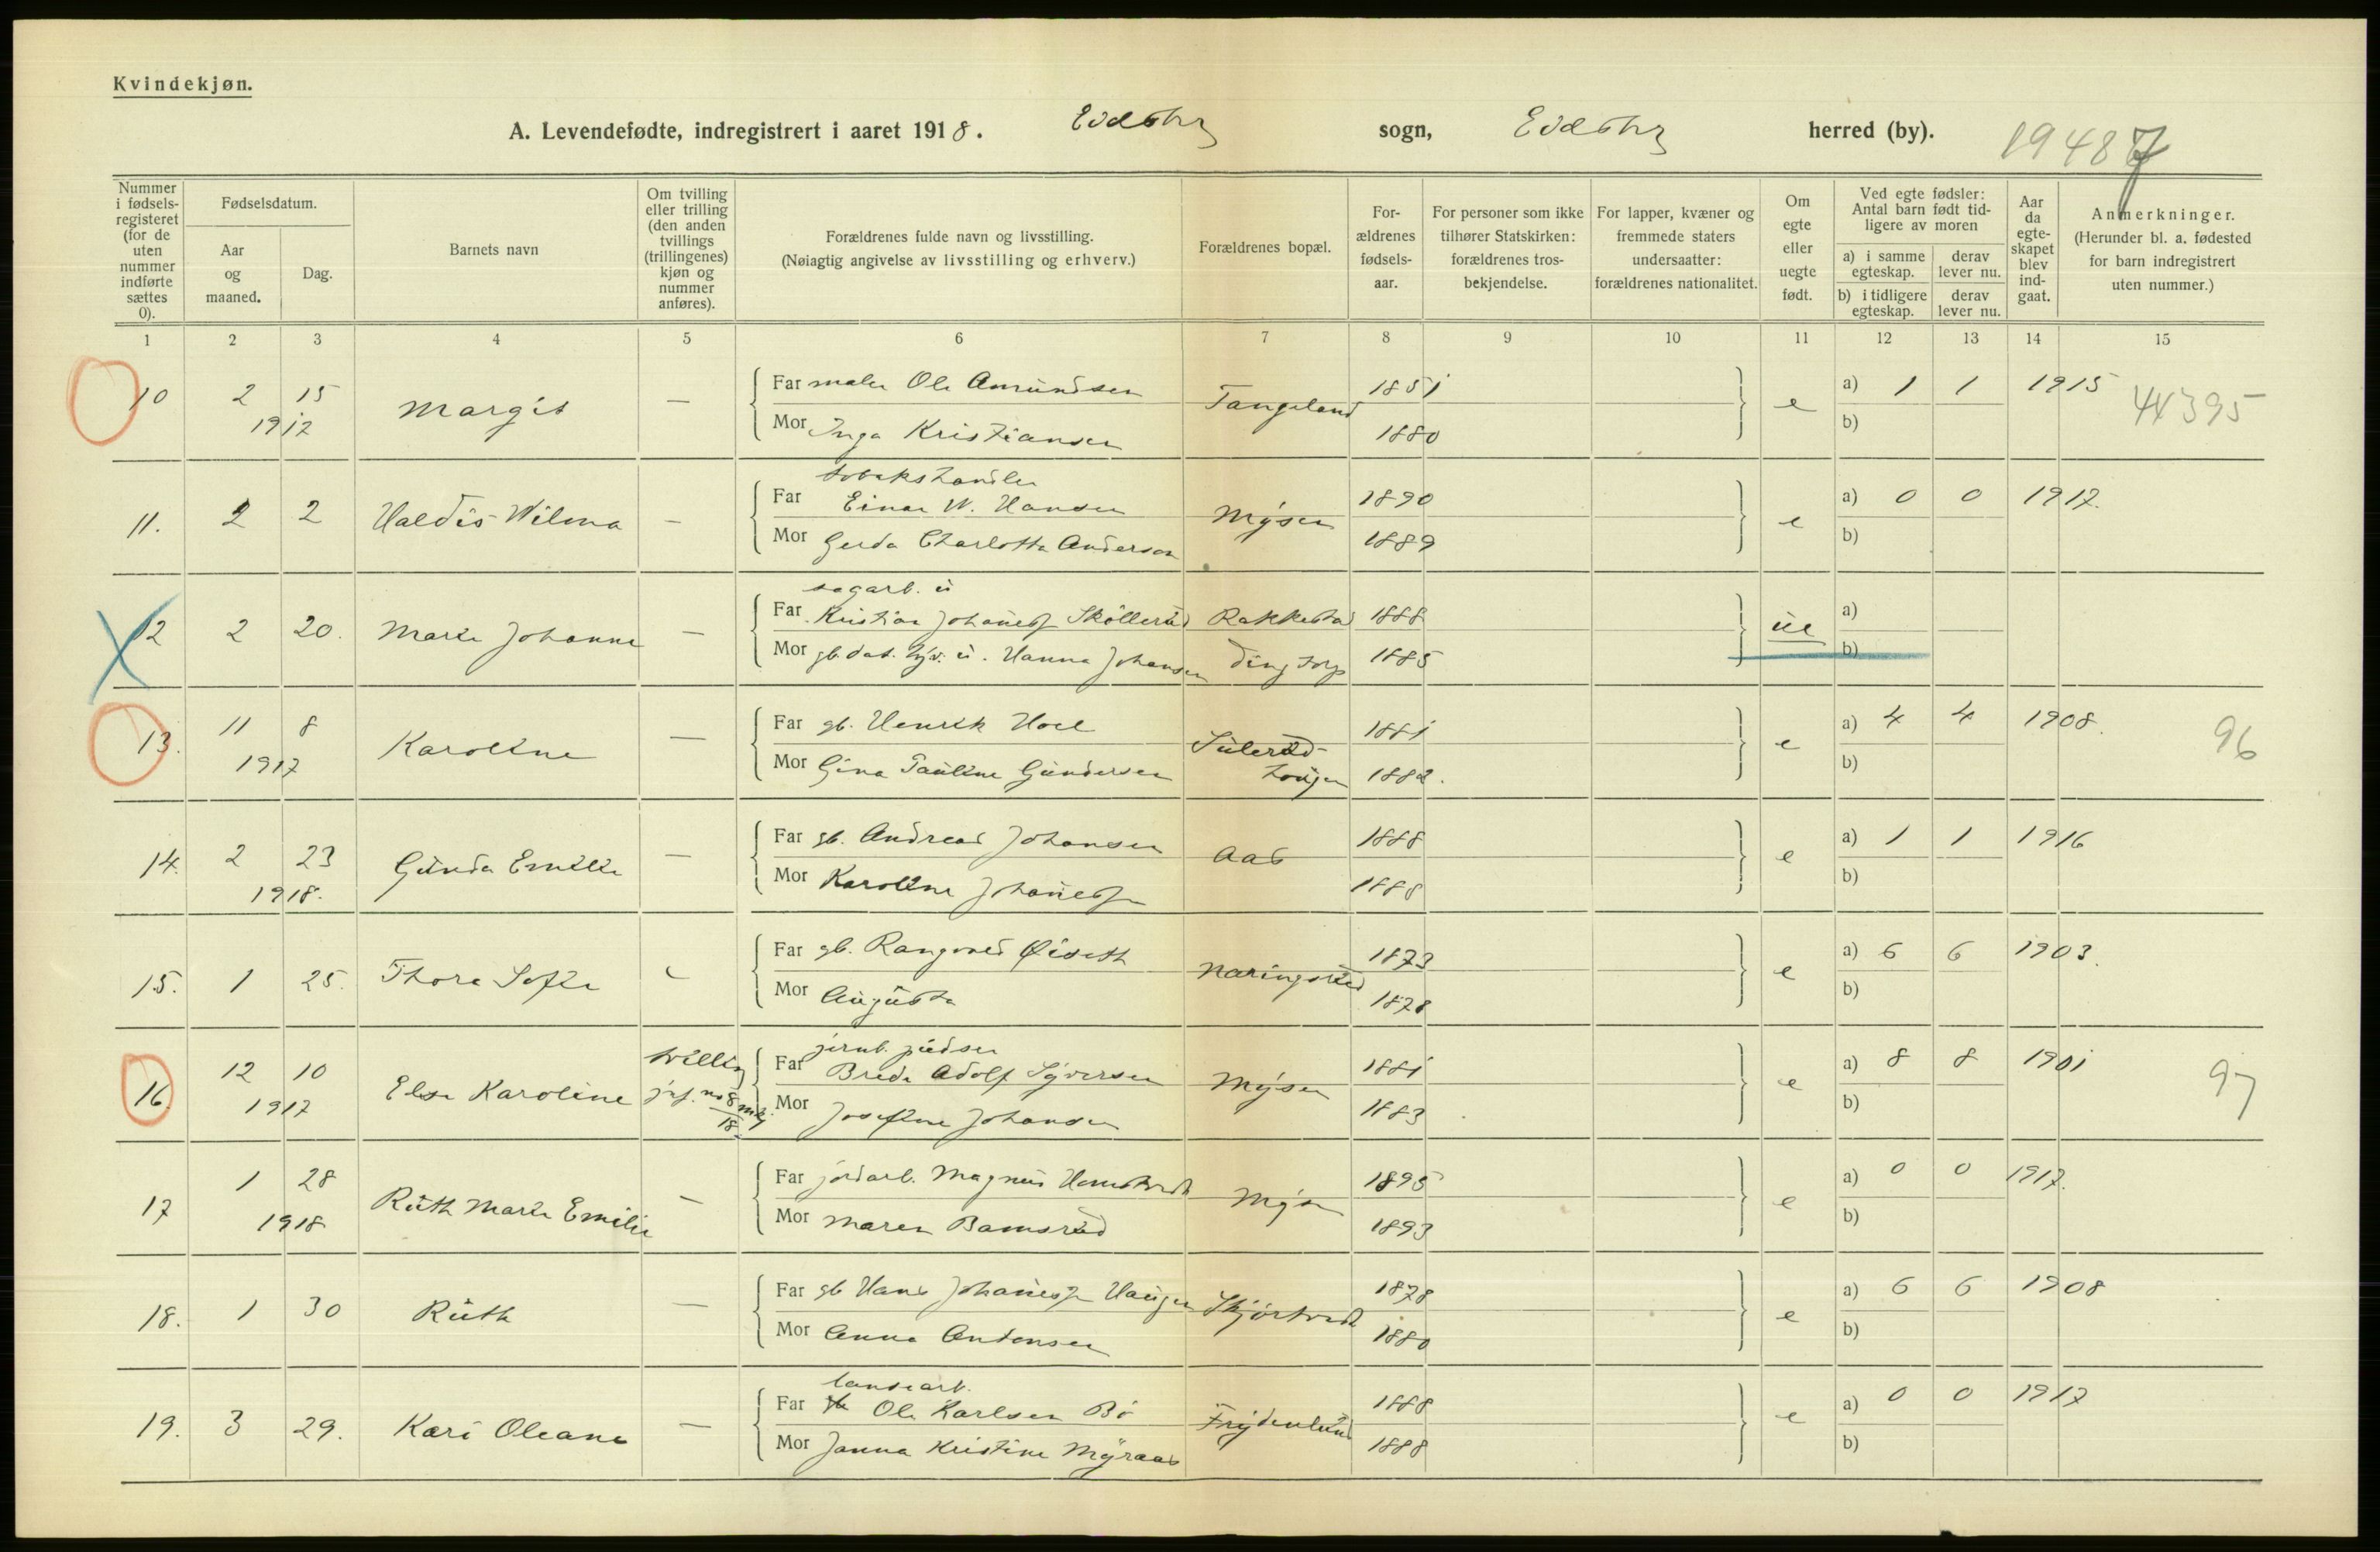 Kvindekjøn.
A. Levendefødte, indregistrert i aaret 1918. Eidsbrg sogn, Eidsbrg herred (by). 19487
Nummer i fødsels-registeret (for de uten nummer indførte sættes 0).
Fødselsdatum.
Aar og maaned.
Dag.
Barnets navn
Om tvilling eller trilling (den anden tvillings (trillingenes) kjøn og nummer anføres).
Forældrenes fulde navn og livsstilling.
(Nøiagtig angivelse av livsstilling og erhverv.)
Forældrenes bopæl.
For-ældrenes fødsels-aar.
For personer som ikke tilhører Statskirken: forældrenes tros-bekjendelse.
For lapper, kvæner og fremmede staters undersaatter: forældrenes nationalitet.
Om egte eller uegte født.
Ved egte fødsler: Antal barn født tid-ligere av moren
a) i samme egteskap.
derav lever nu.
b) i tidligere egteskap.
derav lever nu.
Aar da egte-skapet blev ind-gaat.
Anmerkninger.
(Herunder bl. a. fødested for barn indregistrert uten nummer.)
1 2 3 4 5 6 7 8 9 10 11 12 13 14 15
10 2 15 1917 Margit — Far maler Ole Amundsen Tangeland 1881 e a) 1 1 1915 44395
Mor Inga Kristiansen 1880 b)
tobakshandler
11. 2 2 Haldis Wilma — Far Einar W. Hansen Mysen 1890 e a) 0 0 1917.
Mor Gerda Charlotte Anderson 1889 b)
sagarb. u
12 2 20. Marie Johanne — Far Kristian Johanness Skøllerud Rakkestad 1888 ue a)
Mor gb. dat. u. Hanna Johansen Dingtorp 1885 b)
13. 11 8 1917 Karoline — Far gb. Henrik Hoel Sulerud- 1881 e a) 4 4 1908. 96
Mor Gina Pauline Gundersen haugen 1882. b)
14. 2 23 1918. Gunda Emilie — Far gb. Andreas Johansen Aas 1888 e a) 1 1 1916
Mor Karoline Johannesen 1888 b)
15. 1 25. Thora Sofie — Far gb. Rangvald Øiseth Naringsrud 1873 e a) 6 6 1903.
Mor Augusta 1878 b)
jernb.
16. 12 10 1917 Else Karoline tvilling jvf. no 8 mkj 18 Far Brede Adolf Syversen Mysen 1881 e a) 8 8 1901 97
Mor Josefine Johansen 1883 b)
17 1 28 1918 Ruth Marie Emilie — Far jordarb. Magnus Homstvedt Mysen 1895 e a) 0 0 1917.
Mor Maren Bamsrud 1893 b)
18. 1 30 Ruth — Far gb Hans Johannesen Haugen Skjørtvedt 1878 e a) 6 6 1908
Mor Anna Antonsen 1880 b)
landearb.
19. 3 29. Kari Oleane — Far Ole Karlsen Bø Frydenlund 1888 e a) 0 0 1917
Mor Janna Kristine Myraas 1888 b)